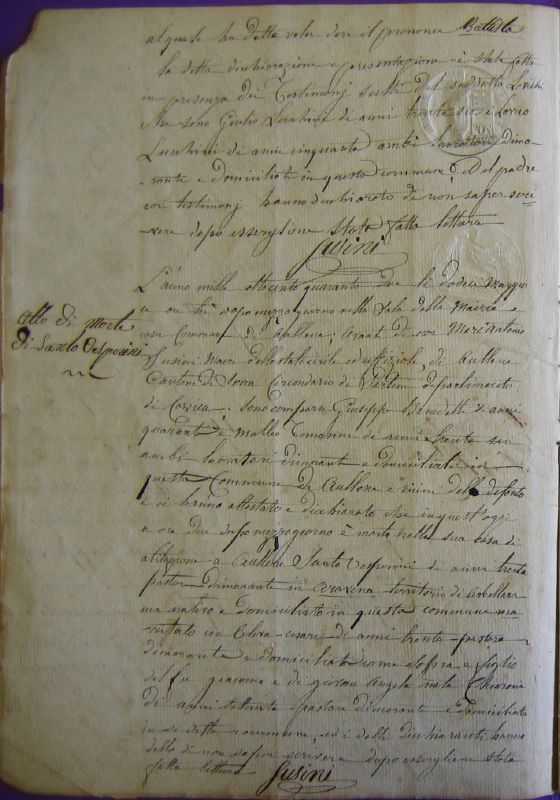 al quale ha detto voler dare il pronome Battista
la detta dichiarazione e presentazione è stata fatta
in presenza dei Testimonj scelti dal suddetto
che sono Giulio Lucchini di anni trenta sei e
Lucchini di anni cinquanta ambi lavoratori dimo-
ranti e domiciliati in questa commune. Il padre
coi testimonj hanno dichiarato di non saper scri-
vere dopo essergliene stata fatta lettura
Susini
Atto di morte
di Santo Vesperini
L'anno mille ottocento quaranta due li dodeci Maggio
a ore tre dopo mezzo giorno nella Sala della Mairia e
casa Comunan di Aullene, Avanti di noi Mari'Antonio
Susini Maire dello stato civile ed uffiziale, di Aullene
Cantone di Serra Circondario di Sarteni dipartimento
di Corsica, sono comparsi Giuseppe Benedetti di anni
quaranta e Matteo Tomasini di anni trenta sei
ambi lavoratori dimoranti e domiciliati in
questa Commune di Aullene e vicini della defonto
i ci hanno attestato e dichiarato che in quest'oggi
a ore due dopo mezzo giorno è morto nella sua casa di
abitazione a Aullene Santo Vesperini di anni trenta
pastore dimorante in Aravena territorio di Arbellara
ma nativo e domiciliato in questa commune
con Clora cesare di anni trenta pastora
dimorante e domiciliata come sopra e figlio
del fu giacomo e di giovan Angela nata Chiaroni
di anni settanta pastora dimorante e domiciliata
in se detta commune, ed i detti dichiaranti hanno
detto di non saper scrivere dopo essergliene stata
fatta lettura Susini